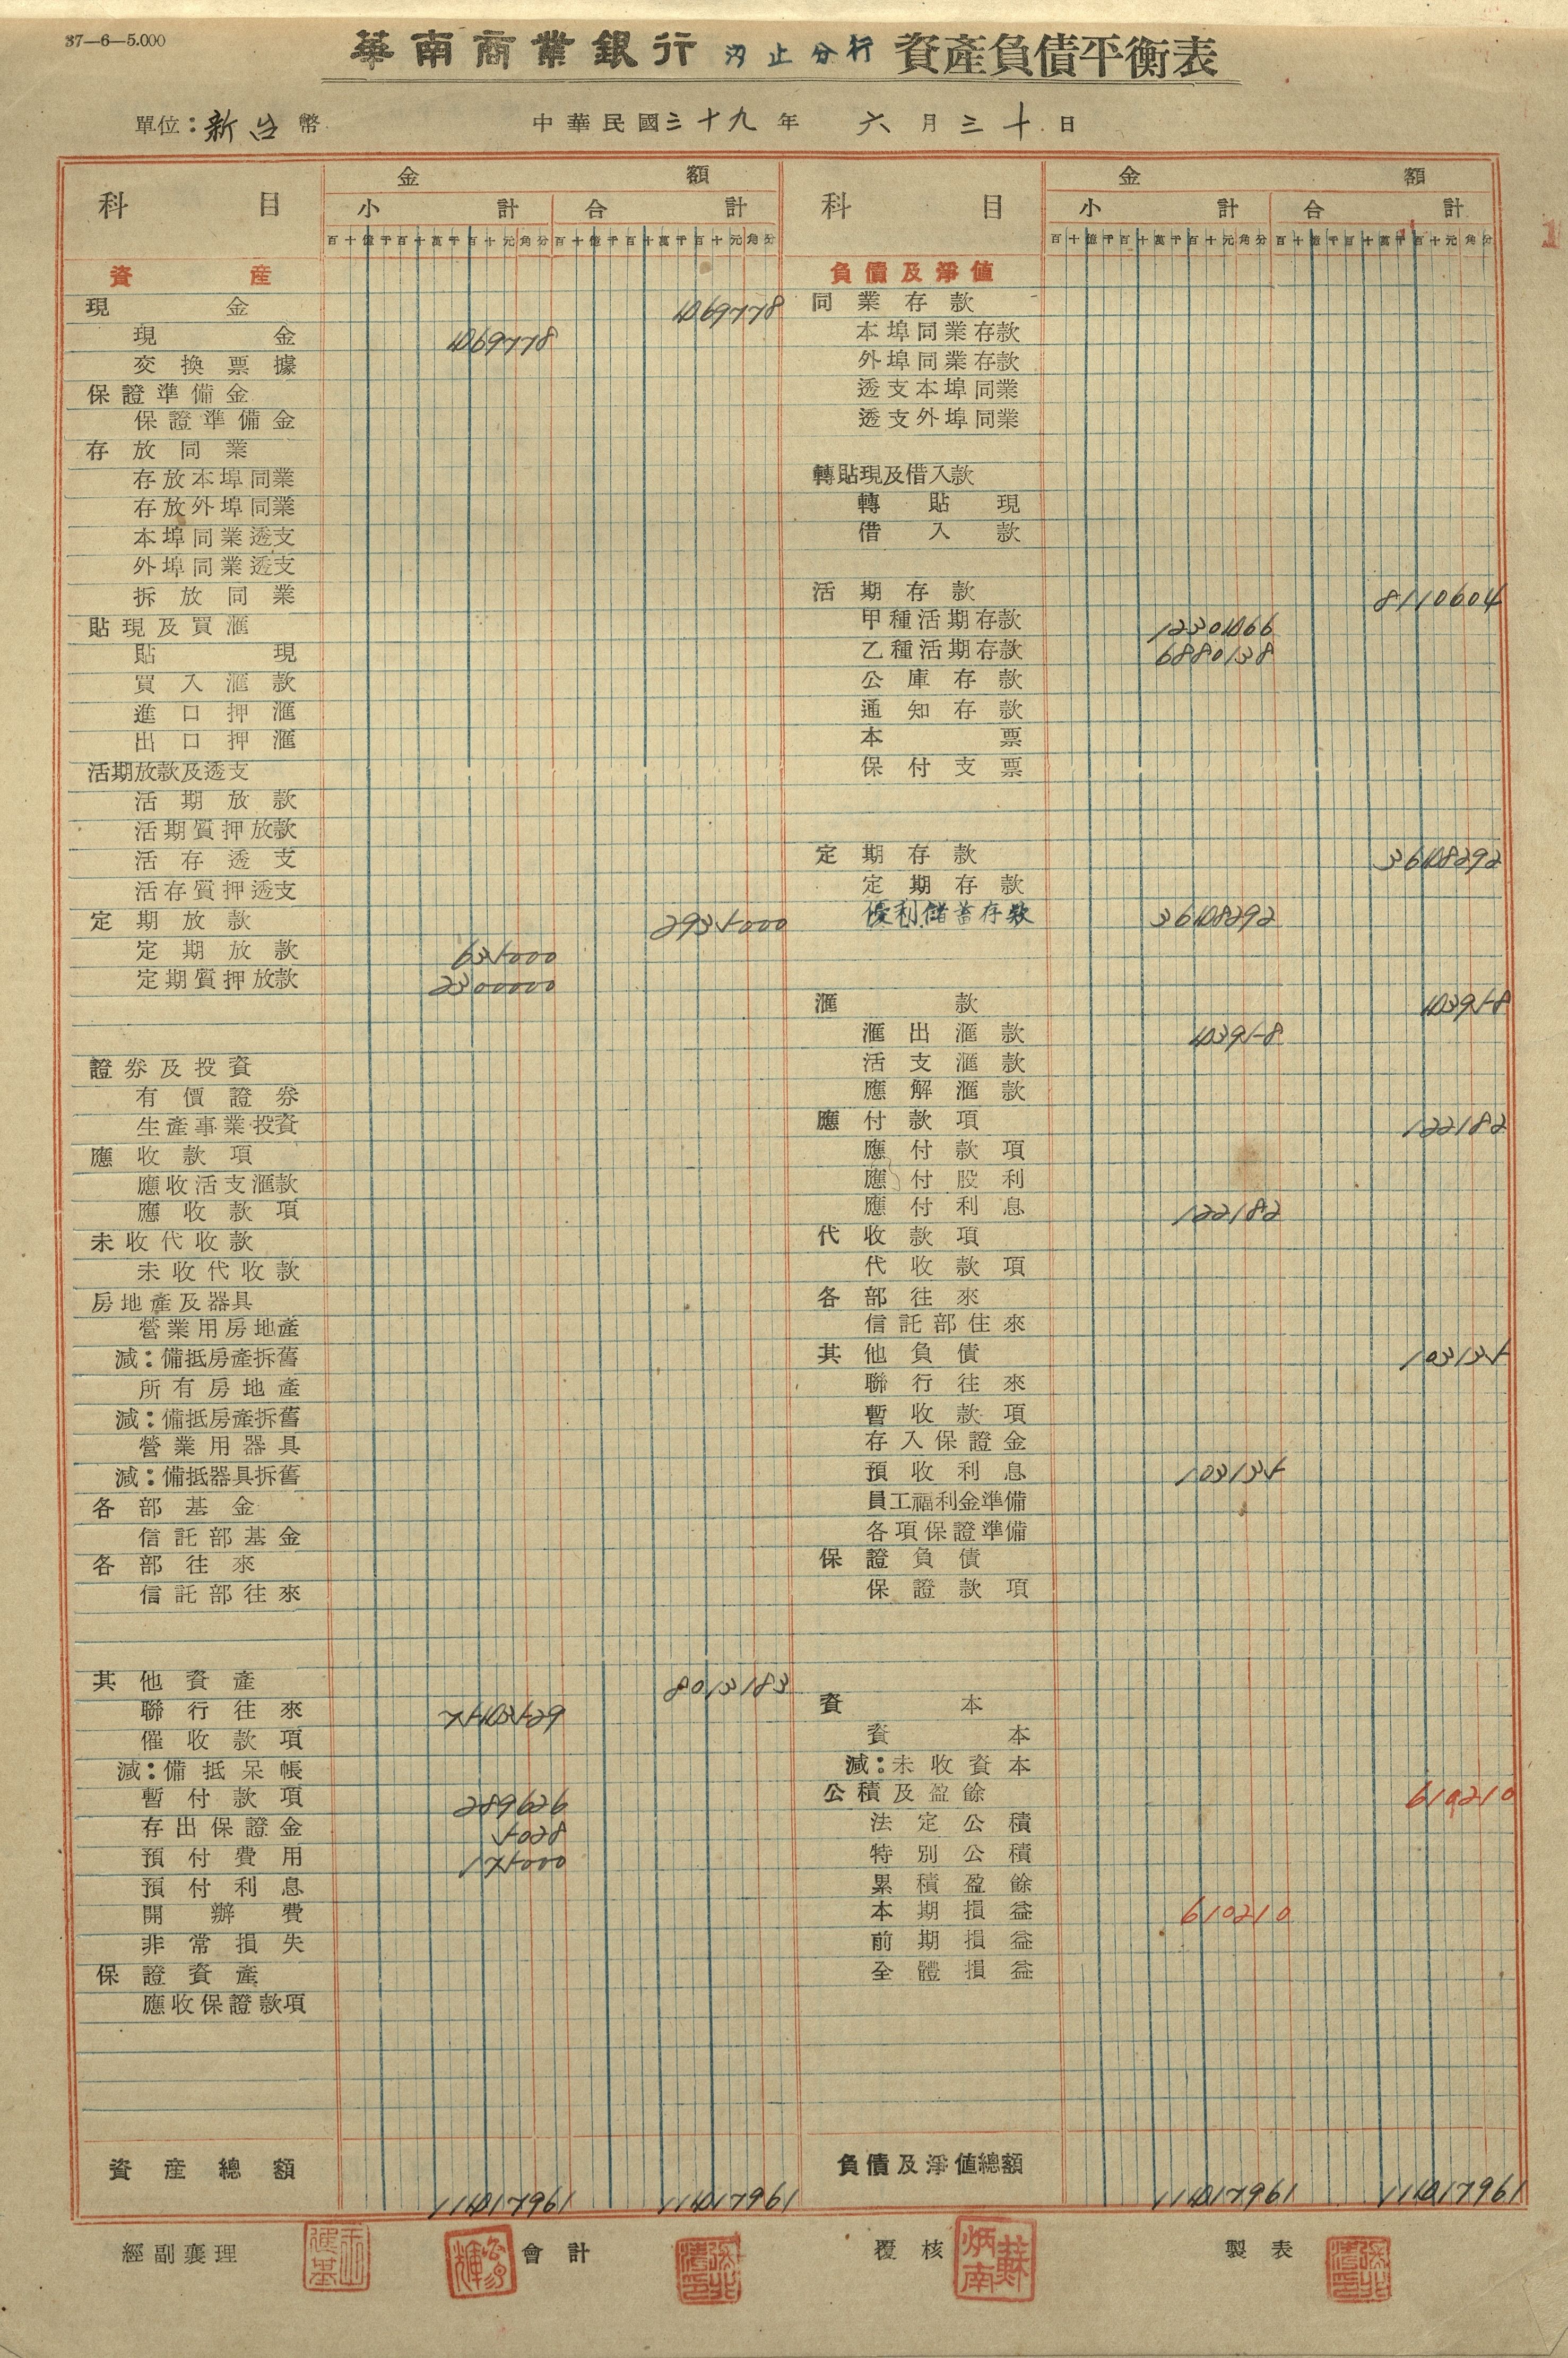 37—6—5.000
華南商業銀行 汐止分行 資產負債平衡表
單位：新台幣 中華民國三十九年 六月三十日
科目 金額
小計 合計
百十億千百十萬千百十元角分 百十億千百十萬千百十元角分
資產
現金 469778
現金 469778
交換票據
保證準備金
保證準備金
存放同業
存放本埠同業
存放外埠同業
本埠同業透支
外埠同業透支
拆放同業
貼現及買滙
貼現
買入滙款
進口押滙
出口押滙
活期放款及透支
活期放款
活期質押放款
活存透支
活存質押透支
定期放款 2935000
定期放款 635000
定期質押放款 2300000
證券及投資
有價證券
生產事業投資
應收款項
應收活支滙款
應收款項
未收代收款
未收代收款
房地產及器具
營業用房地產
減：備抵房產拆舊
所有房地產
減：備抵房產拆舊
營業用器具
減：備抵器具拆舊
各部基金
信託部基金
各部往來
信託部往來
其他資產 8013183
聯行往來 7543529
催收款項
減：備抵呆帳
暫付款項 289626
存出保證金 5028
預付費用 175000
預付利息
開辦費
非常損失
保證資產
應收保證款項
資產總額 11417961 11417961
科目 金額
小計 合計
百十億千百十萬千百十元角分 百十億千百十萬千百十元角分
負債及淨值
同業存款
本埠同業存款
外埠同業存款
透支本埠同業
透支外埠同業
轉貼現及借入款
轉貼現
借入款
活期存款 8110604
甲種活期存款 1230466
乙種活期存款 6880138
公庫存款
通知存款
本票
保付支票
定期存款 3648292
定期存款
優利儲蓄存款 3648292
滙款 43958
滙出滙款 43958
活支滙款
應解滙款
應付款項 122182
應付款項
應付股利
應付利息 122182
代收款項
代收款項
各部往來
信託部往來
其他負債 103135
聯行往來
暫收款項
存入保證金
預收利息 103135
員工福利金準備
各項保證準備
保證負債
保證款項
資本
資本
減：未收資本
公積及盈餘 610210
法定公積
特別公積
累積盈餘
本期損益 610210
前期損益
全體損益
負債及淨值總額 11417961 11417961
經副襄理 會計 覆核 蘇炳南 製表
1